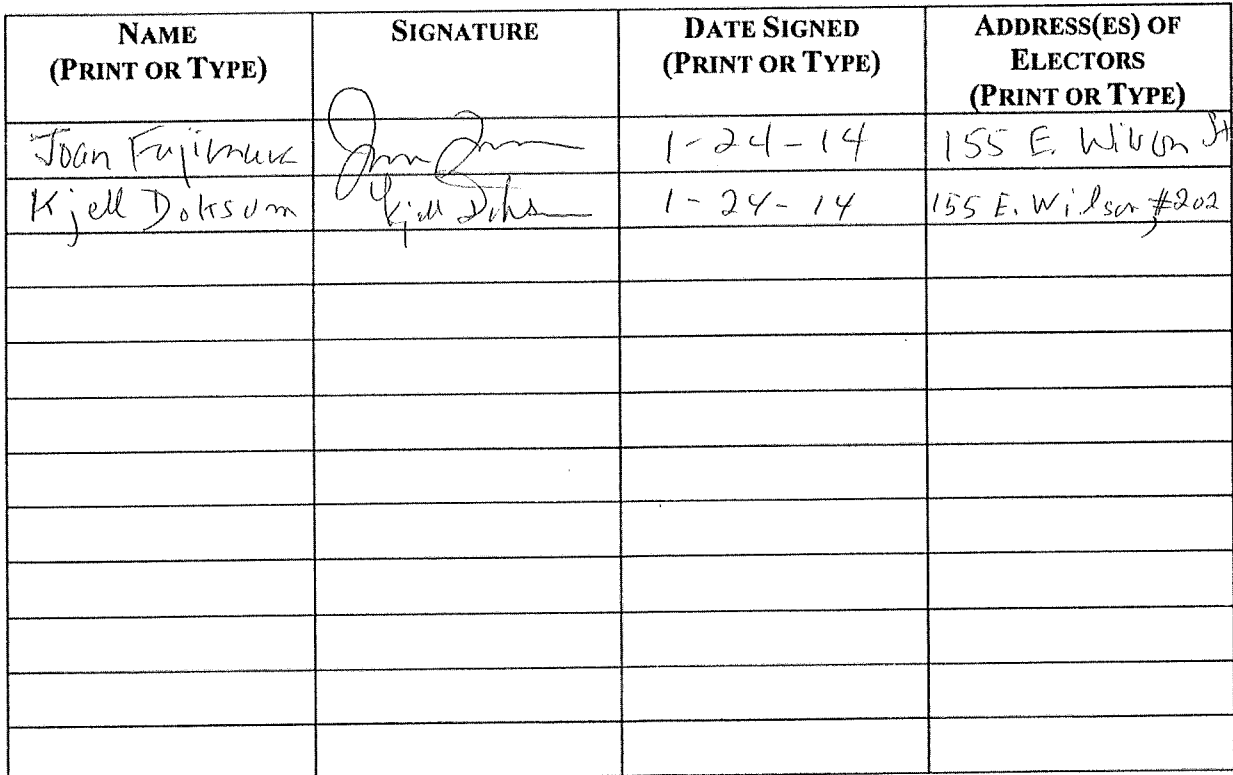 NAME
(PRINT OR TYPE)
SIGNATURE
DATE SIGNED
(PRINT OR TYPE)
ADDRESS(ES) OF
ELECTORS
(PRINT OR TYPE)
Joan Fujimura 1-24-14 155 E. Wilson St
Kjell Doksum Kjell Doksum 1-24-14 155 E. Wilson, #202